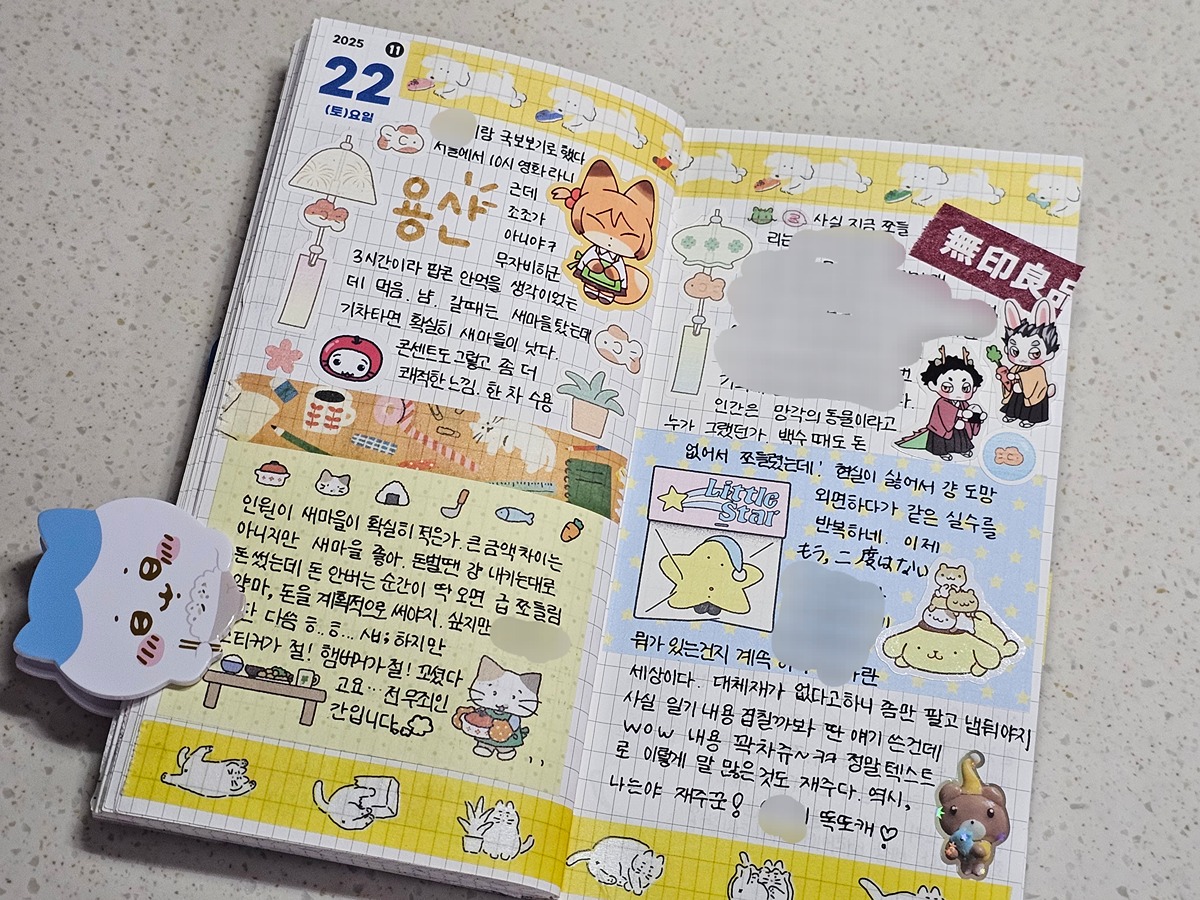 2025 11
22
(토)요일
이랑 국보보기로 했다
서울에서 10시 영화라니
근데
조조가
아니야ㅋ
무자비하군
용산
3시간이라 팝콘 안먹을 생각이었는
데 먹음. 냠. 갈때는 새마을탔는데
기차타면 확실히 새마을이 낫다.
콘센트도 그렇고 좀 더
쾌적한 느낌. 한 차 수용
인원이 새마을이 확실히 적은가. 큰 금액차이는
아니지만 새마을 좋아. 돈벌땐 걍 내키는대로
돈 썼는데 돈 안버는 순간이 딱 오면 급 쪼들림
임마, 돈을 계획적으로 써야지. 싶지만
다음 ㅎ..ㅎ... ㅅㅂ; 하지만
스티커가 절! 햄버거가 절! 꼬셨다
고요... 전 우죄인
간입니다
사실 지금 쪼들
리는
無印良品
인간은 망각의 동물이라고
누가 그랬던가. 백수 때도 돈
없어서 쪼들렸는데! 현실이 싫어서 걍 도망
외면하다가 같은 실수를
반복하네. 이제
もう, 二度はない
Little
Star
뭐가 있는건지 계속
란
세상이다. 대체재가 없다고하니 좀만 팔고 냅둬야지
사실 일기 내용 겹칠까봐 딴 얘기 쓴건데
wow 내용 꽉차쥬~ㅋㅋ 정말 텍스트
로 이렇게 말 많은것도 재주다. 역시,
나는야 재주꾼!
똑또캐♡